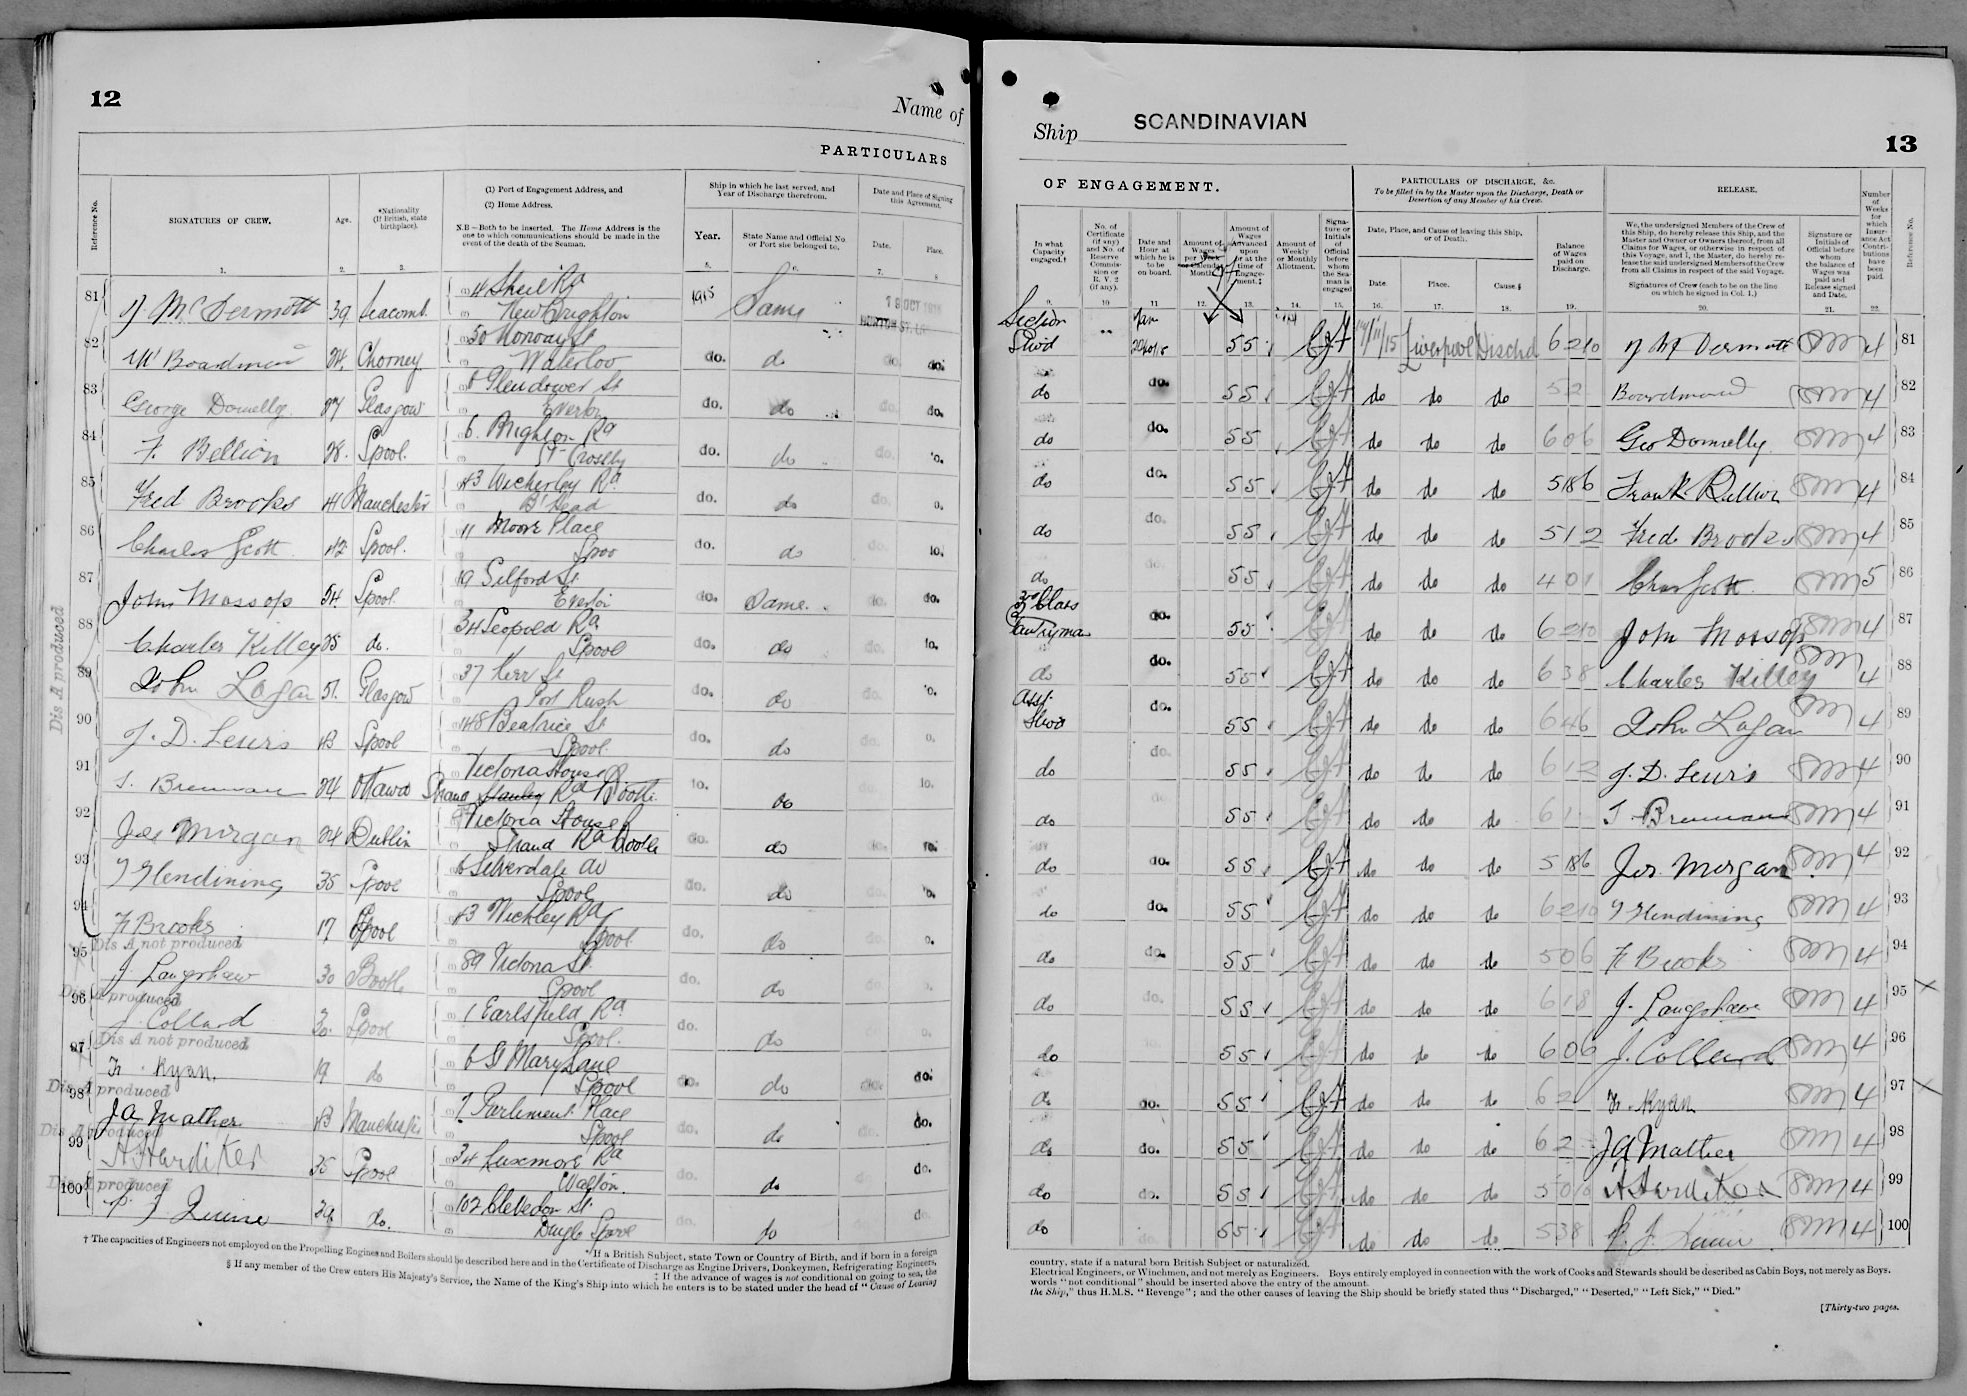 12
Name of
PARTICULARS
Reference No.
SIGNATURES OF CREW.
Age.
*Nationality
(If British, state
birthplace).
(1) Port of Engagement Address, and
(2) Home Address.
N.B—Both to be inserted. The Home Address is the
one to which communications should be made in the
event of the death of the Seaman.
Ship in which he last served, and
Year of Discharge therefrom.
Year.
State Name and Official No.
or Port she belonged to.
Date and Place of Signing
this Agreement.
Date.
Place.
1. 2. 3. 5. 6. 7. 8
81 McDermott 39 Seacomb. 4 Sheil Rd 1915 Same
New Brighton
82 W Boardman 24 Chorney 50 Norway St do. do do. do.
Waterloo
83 George Donnelly 27 Glasgow 8 Glendower St do. do do. do.
Everton
84 F. Bellion 28. Lpool. 6. Brighton Rd do. do do.
Crosby
85 Fred Brooks 41 Manchester 43 Wicherley Rd do. do do.
B'Head
86 Charles Scott 42 Lpool. 11 Moore Place do. do do.
Lpoo
87 John Mossop 54 Lpool. 19 Silford St. do. Same. do. do.
Everton
88 Charles Killey 25 do. 34 Leopold Rd do. do do.
Lpool
89 John Logan 51. Glasgow 37 Kerr St do. do
Port Rush
90 J. D. Lewis 43 Lpool 48 Beatrice St do. do do.
Lpool.
91 Brennan 24 Ottawa Victoria House do
Strand Stanley Rd Bootle
92 Jos Morgan 24 Dublin Victoria House do. do do.
Strand Rd Bootle
93 Glendining 35 Lpool 6 Silverdale Av do. do do.
Lpool
94 F Brooks 17 Lpool 43 Wichley Rd do. do
Lpool
Dis A not produced
95 J. Langshaw 30 Bootle 89 Victoria St. do. do
Lpool
Dis A produced
96 J. Collard 30. Lpool 1 Earlsfield Rd do. do
Lpool.
Dis A not produced
97 F. Ryan. 19 do 6 St Mary Lane do. do do. do.
Lpool
Dis A produced
98 J A Mather 43 Manchester 7 Parliment Place do. do do.
Lpool
Dis A produced
99 A Hardiker 35 Lpool 34 Luxmore Rd do. do do.
Walton.
Dis A produced
100 P J Quine 39 do. 102 Clevedon St. do. do do.
Dingle Lpool
Dis A produced
† The capacities of Engineers not employed on the Propelling Engines and Boilers should be described here and in the Certificate of Discharge as Engine Drivers, Donkeymen, Refrigerating Engineers,
* If a British Subject, state Town or Country of Birth, and if born in a foreign
‡ If the advance of wages is not conditional on going to sea, the
§ If any member of the Crew enters His Majesty's Service, the Name of the King's Ship into which he enters is to be stated under the head of "Cause of Leaving
Ship SCANDINAVIAN
13
OF ENGAGEMENT.
PARTICULARS OF DISCHARGE, &c.
To be filled in by the Master upon the Discharge, Death or
Desertion of any Member of his Crew.
RELEASE.
In what
Capacity
engaged.†
No. of
Certificate
(if any)
and No. of
Reserve
Commis-
sion or
R. V. 2
(if any).
Date and
Hour at
which he is
to be
on board.
Amount of
Wages
per Week
Month.
Amount of
Wages Advanced
upon
or at the
time of
Engage-
ment.‡
Amount of
Weekly
or Monthly
Allotment.
Signa-
ture or
Initials
of
Official
before
whom
the Sea-
man is
engaged
Date, Place, and Cause of leaving this Ship,
or of Death.
Date.
Place.
Cause §
Balance
of Wages
paid on
Discharge.
We, the undersigned Members of the Crew of
this Ship, do hereby release this Ship, and the
Master and Owner or Owners thereof, from all
Claims for Wages, or otherwise in respect of
this Voyage, and I, the Master, do hereby re-
lease the said undersigned Members of the Crew
from all Claims in respect of the said Voyage.
Signatures of Crew (each to be on the line
on which he signed in Col. 1.)
Signature or
Initials of
Official before
whom
the balance of
Wages was
paid and
Release signed
and Date.
Number
of
Weeks
for
which
Insur-
ance Act
Contri-
butions
have
been
paid.
Reference No.
9. 10 11 12. 13. 14. 15. 16. 17. 18. 19. 20. 21. 22.
Section
Stwd 55 14/11/15 Liverpool Dischd 6 2 10 McDermott 4 81
do do. 55 do do do 52 Boardman 4 82
do do. 55 do do do 6 0 6 Geo Donnelly 4 83
do do. 55 do do do 5 18 6 Frank Bellion 4 84
do do. 55 do do do 5 1 2 Fred Brooks 4 85
do do. 55 do do do 4 0 1 Chas Scott 5 86
3rd Class
Pantryman do. 55 do do do 6 2 10 John Mossop 4 87
do do. 55 do do do 6 3 8 Charles Killey 4 88
Asst.
Stwd do. 55 do do do 6 4 6 John Logan 4 89
do do. 55 do do do 6 1 2 J. D. Lewis 4 90
do do 55 do do do 6 1 Brennan 4 91
do do. 55 do do do 5 18 6 Jos. Morgan 4 92
do do. 55 do do do 6 2 10 Glendining 4 93
do do. 55 do do do 5 0 6 F Brooks 4 94
do do. 55 do do do 6 1 8 J. Langshaw 4 95
do 55 do do do 6 0 6 J. Collard 4 96
do do. 55 do do do 6 2 F. Ryan 4 97
do do. 55 do do do 6 2 J A Mather 4 98
do do. 55 do do do A Hardiker 4 99
do do. 55 do do do 5 3 8 P. J. Quine 4 100
country, state if a natural born British Subject or naturalized.
Electrical Engineers, or Winchmen, and not merely as Engineers. Boys entirely employed in connection with the work of Cooks and Stewards should be described as Cabin Boys, not merely as Boys.
words "not conditional" should be inserted above the entry of the amount.
the Ship," thus H.M.S. "Revenge"; and the other causes of leaving the Ship should be briefly stated thus "Discharged," "Deserted," "Left Sick," "Died."
[Thirty-two pages.